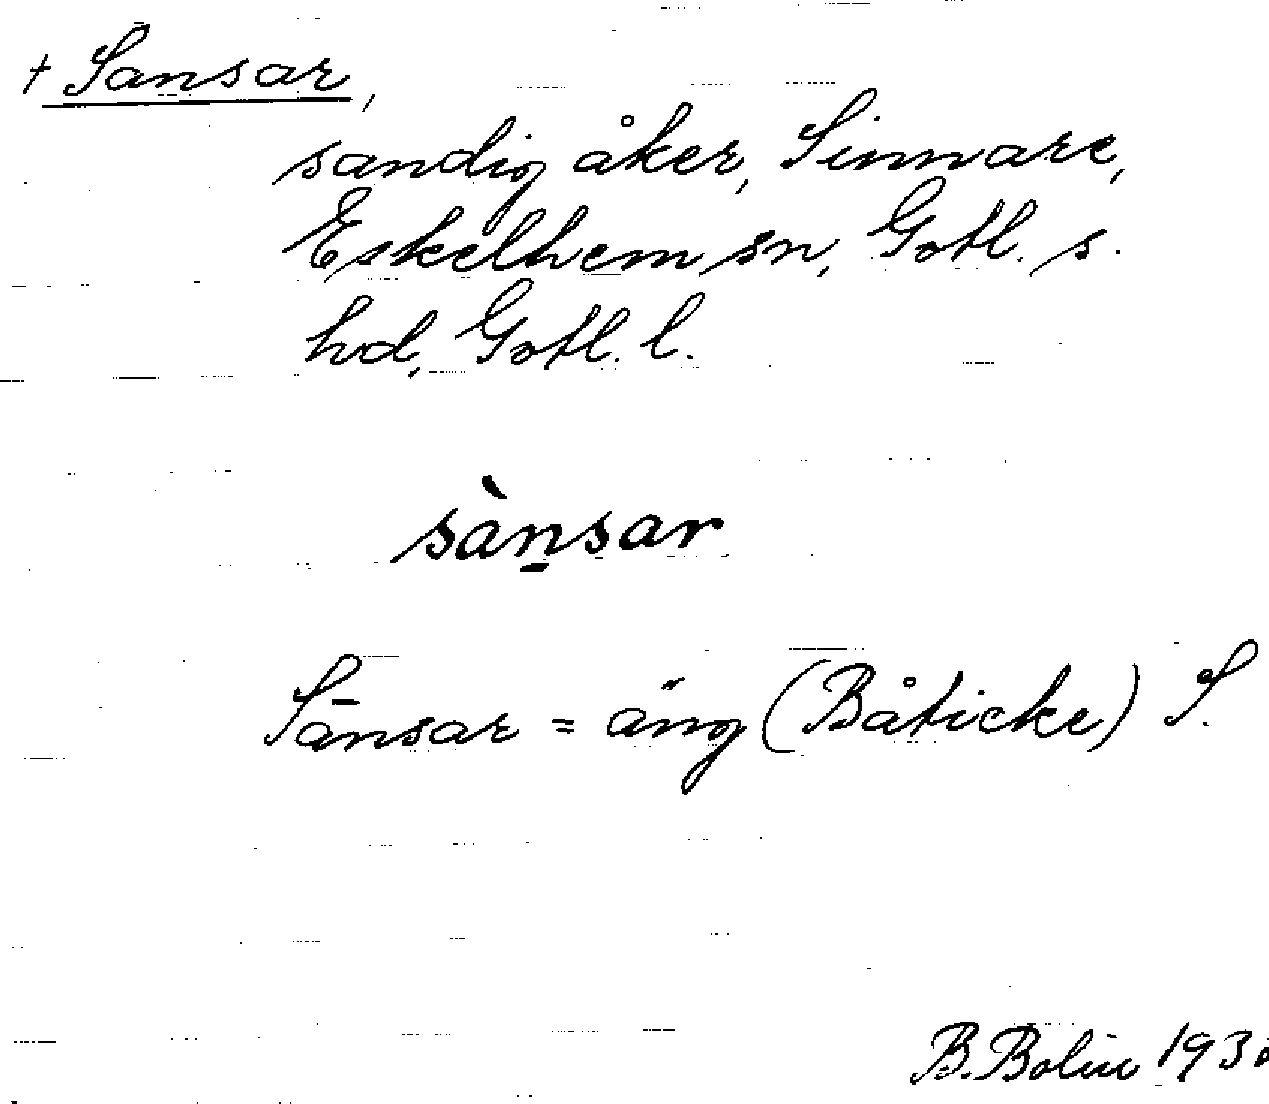 + Sansar,
sandig åker, Sinnare,
Eskelhem sn, Gotl. s.
hd, Gotl. l.
sàn̲sar
Sānsar = äng (Båticke) S.
B. Bolin